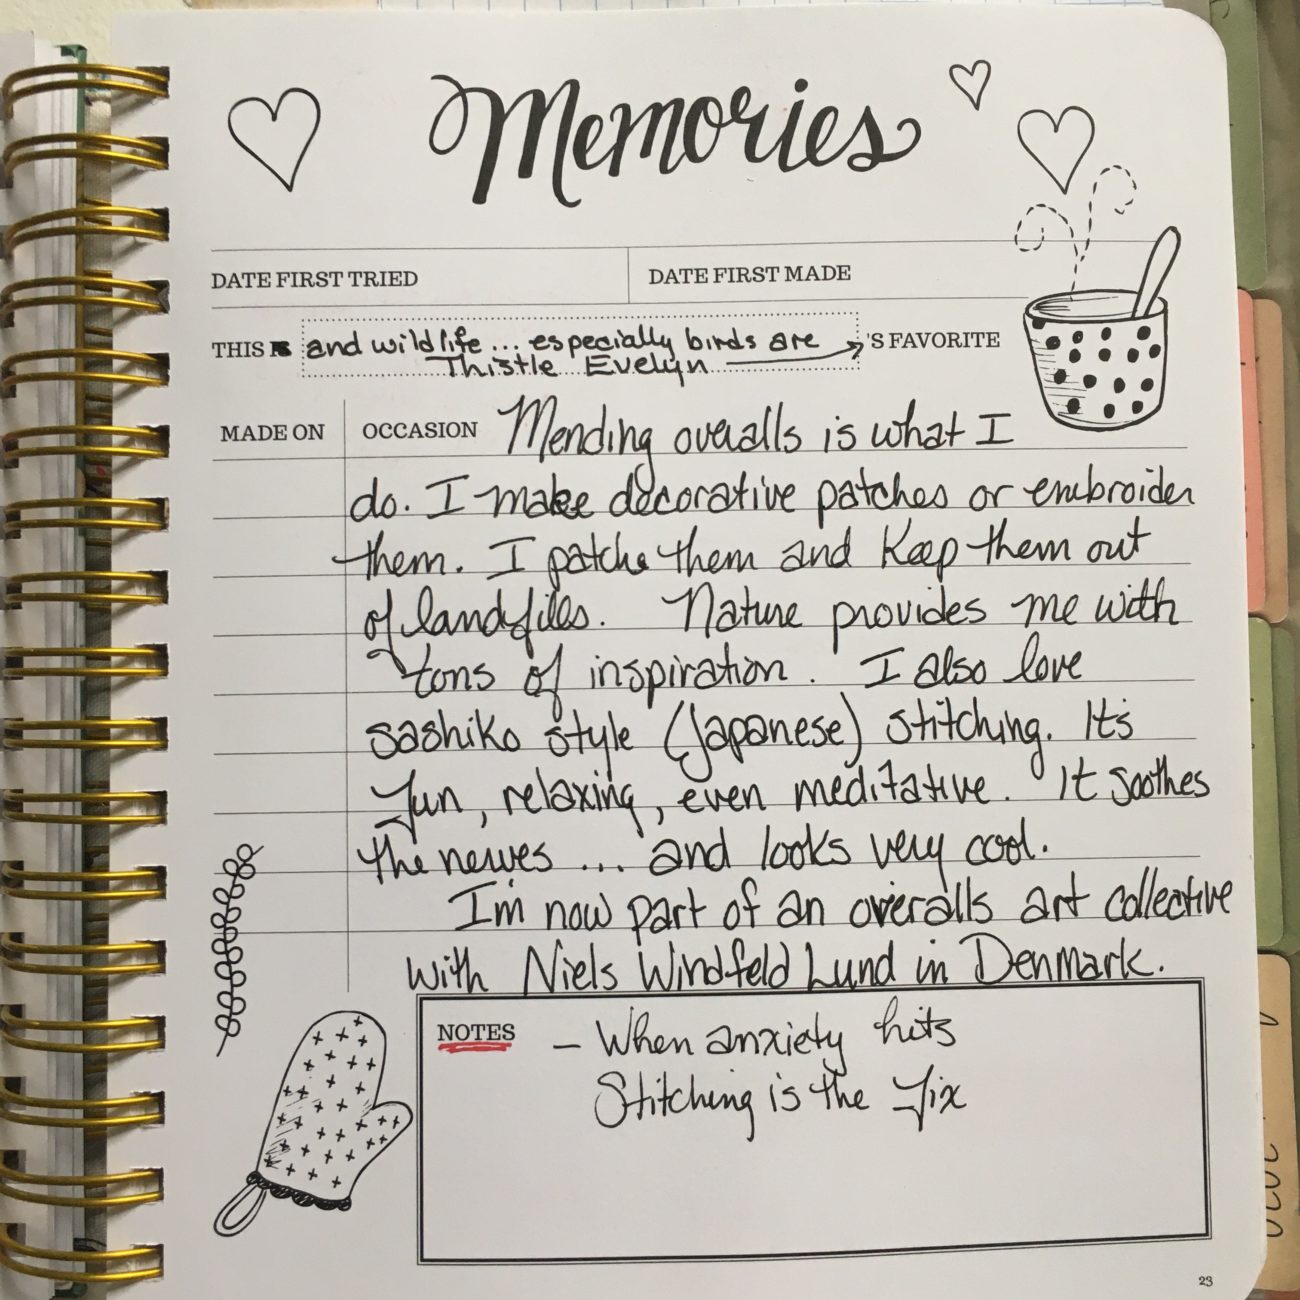 Memories
DATE FIRST TRIED DATE FIRST MADE
THIS IS and wildlife ... especially birds are 'S FAVORITE
Thistle Evelyn
MADE ON OCCASION Mending overalls is what I
do. I make decorative patches or embroider
them. I patche them and keep them out
of landfills. Nature provides me with
tons of inspiration. I also love
sashiko style (Japanese) stitching. It's
fun, relaxing, even meditative. It soothes
the nerves ... and looks very cool.
I'm now part of an overalls art collective
with Niels Windfeld Lund in Denmark.
NOTES - When anxiety hits
Stitching is the fix
23